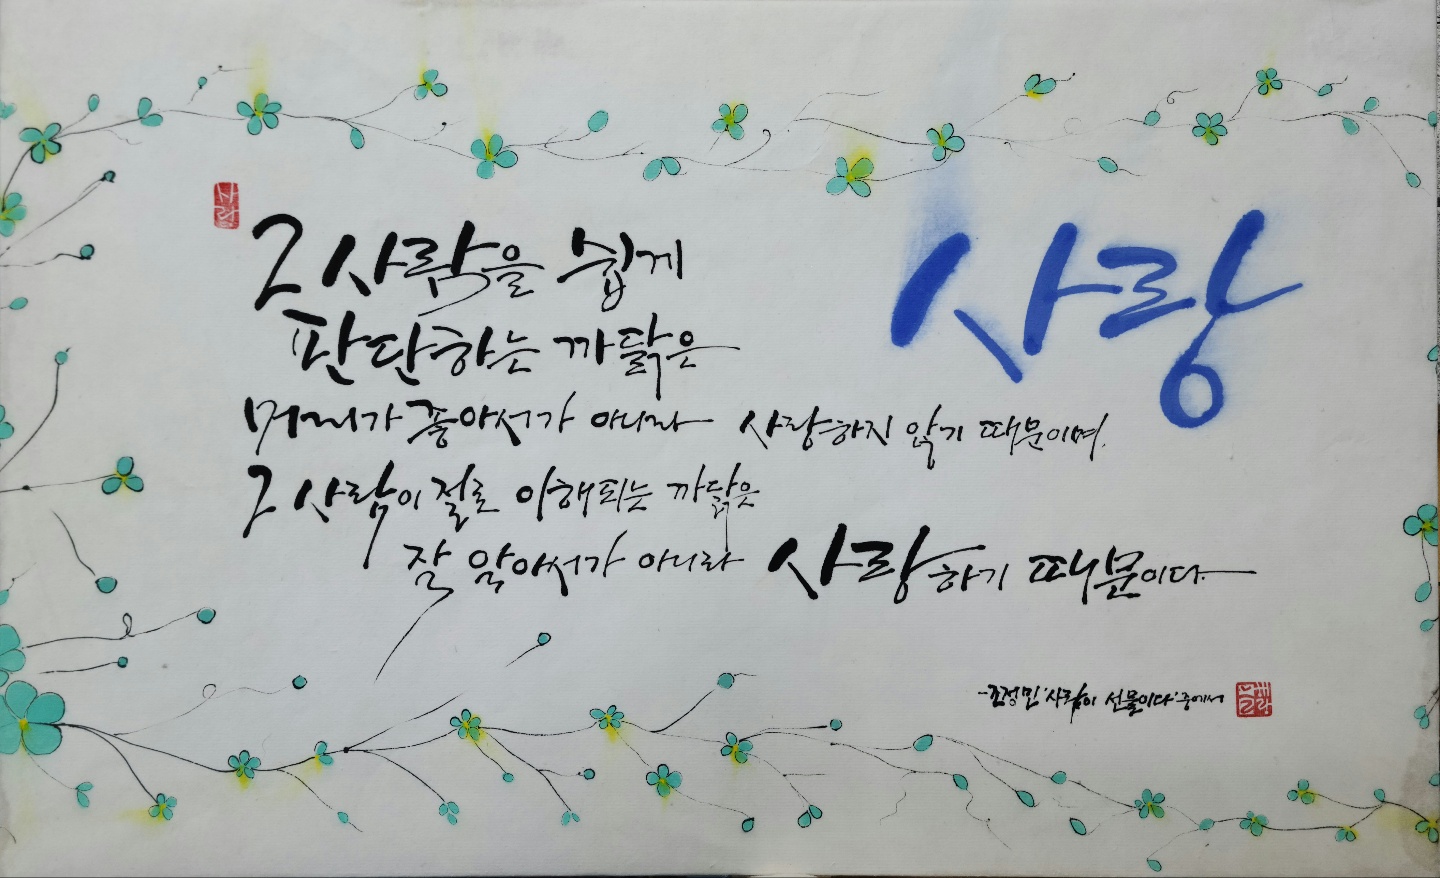 사랑
사랑
그 사람을 쉽게
판단하는 까닭은
머리가 좋아서가 아니라 사랑하지 않기 때문이며,
그 사람이 절로 이해되는 까닭은
잘 알아서가 아니라 사랑하기 때문이다.
-조정민 '사람이 선물이다' 중에서